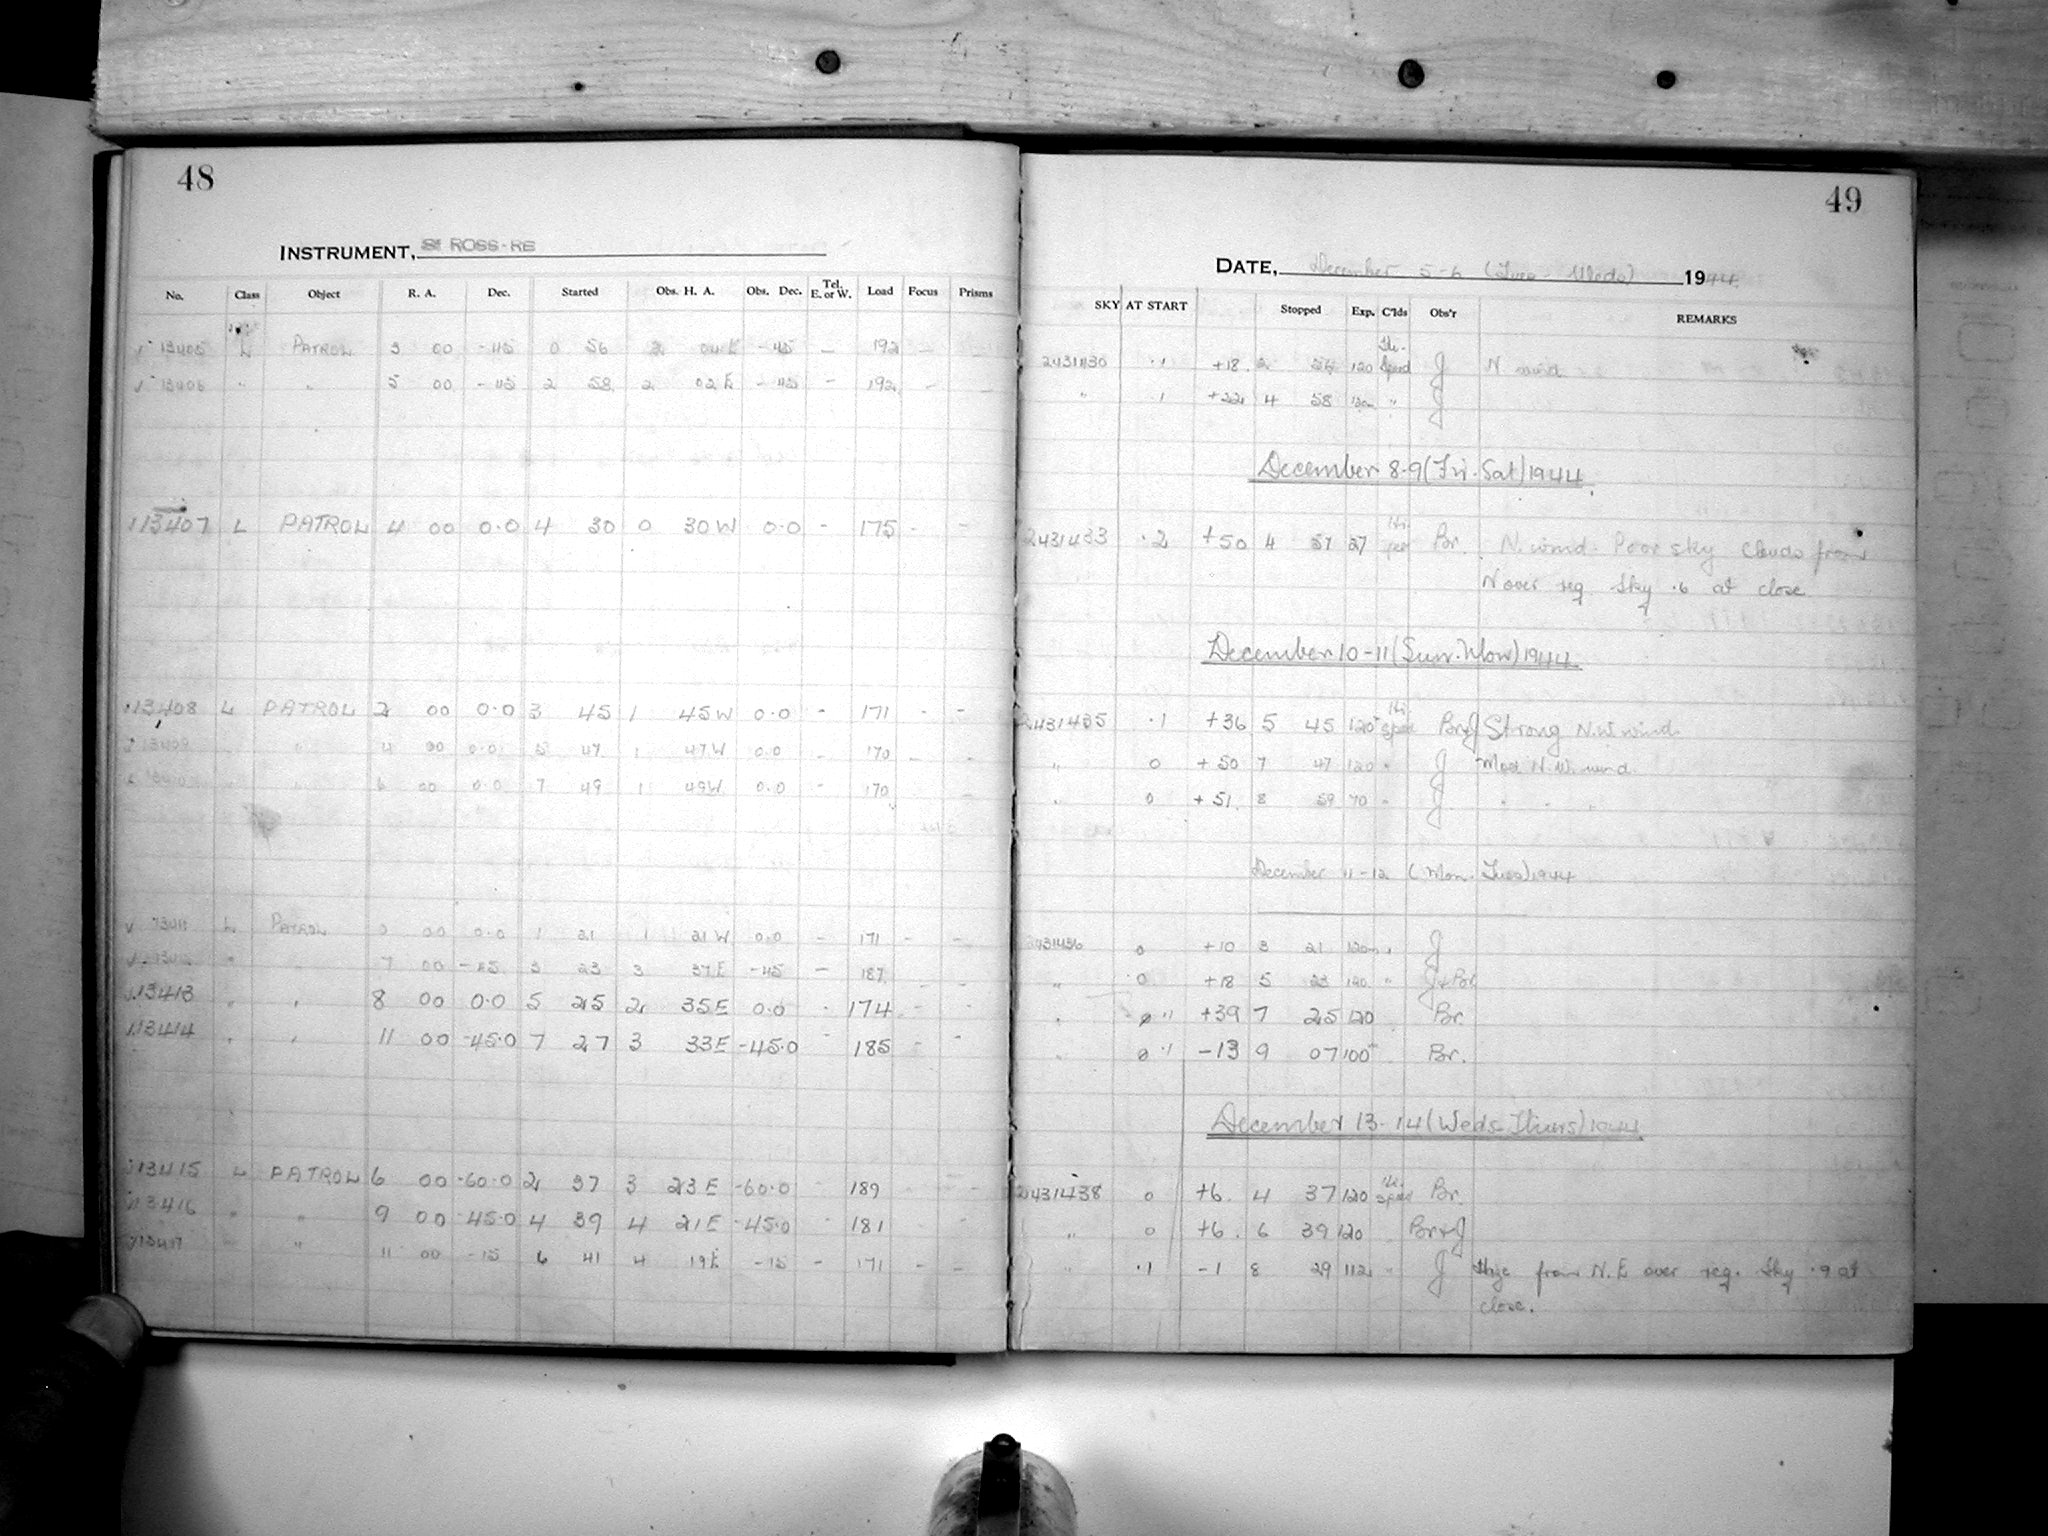 48
INSTRUMENT, ROSS-RE
No. Class Object R. A. Dec. Started Obs. H. A. Obs. Dec. Tel. E. or W. Load Focus Prisms
13405 L PATROL 3 00 -45 0 56 2 04 E -45 - 192 - -
13406 " " 5 00 -45 2 58 2 02 E -45 - 192 - -
13407 L PATROL 4 00 0.0 4 30 0 30 W 0.0 - 175 - -
13408 L PATROL 2 00 0.0 3 45 1 45 W 0.0 - 171 - -
13409 " " 4 00 0.0 5 47 1 47 W 0.0 - 170 - -
" " 6 00 0.0 7 49 1 49 W 0.0 - 170 -
13411 L PATROL 0 00 0.0 1 21 1 21 W 0.0 - 171 - -
" " 7 00 -45 3 23 3 37 E -45 - 187 - -
13413 " " 8 00 0.0 5 25 2 35 E 0.0 - 174 - -
13414 " " 11 00 -45.0 7 27 3 33 E -45.0 - 185 - -
13415 L PATROL 6 00 -60.0 2 37 3 23 E -60.0 - 189 - -
13416 " " 9 00 -45.0 4 39 4 21 E -45.0 - 181 - -
13417 " " 11 00 -15 6 41 4 19 E -15 - 171 - -
49
DATE, December 5-6 (Tues - Weds) 1944
SKY AT START Stopped Exp. C'lds Obs'r REMARKS
2431430 .1 +18 2 56 120 Speed J N wind
" 1 +22 4 58 120 " J
December 8-9 (Fri. Sat) 1944
2431433 .2 +50 4 57 27 Br. N. wind. Poor sky Clouds from
N over reg Sky .6 at close
December 10-11 (Sun. Mon) 1944
2431435 .1 +36 5 45 120 Br+J Strong N.W wind
" 0 +50 7 47 120 " J Mod N.W. wind
" 0 +51 8 59 70 " J " " "
December 11-12 (Mon. Tues) 1944
2431436 0 +10 3 21 120 " J
" 0 +18 5 23 120 " J+Br
" +39 7 25 120 Br.
" .1 -13 9 07 100 Br.
December 13-14 (Weds Thurs) 1944
2431438 0 +6 4 37 120 Speed Br.
" 0 +6 6 39 120 Br+J
" .1 -1 8 29 112 " J Haze from N.E over reg. Sky .9 at
close.